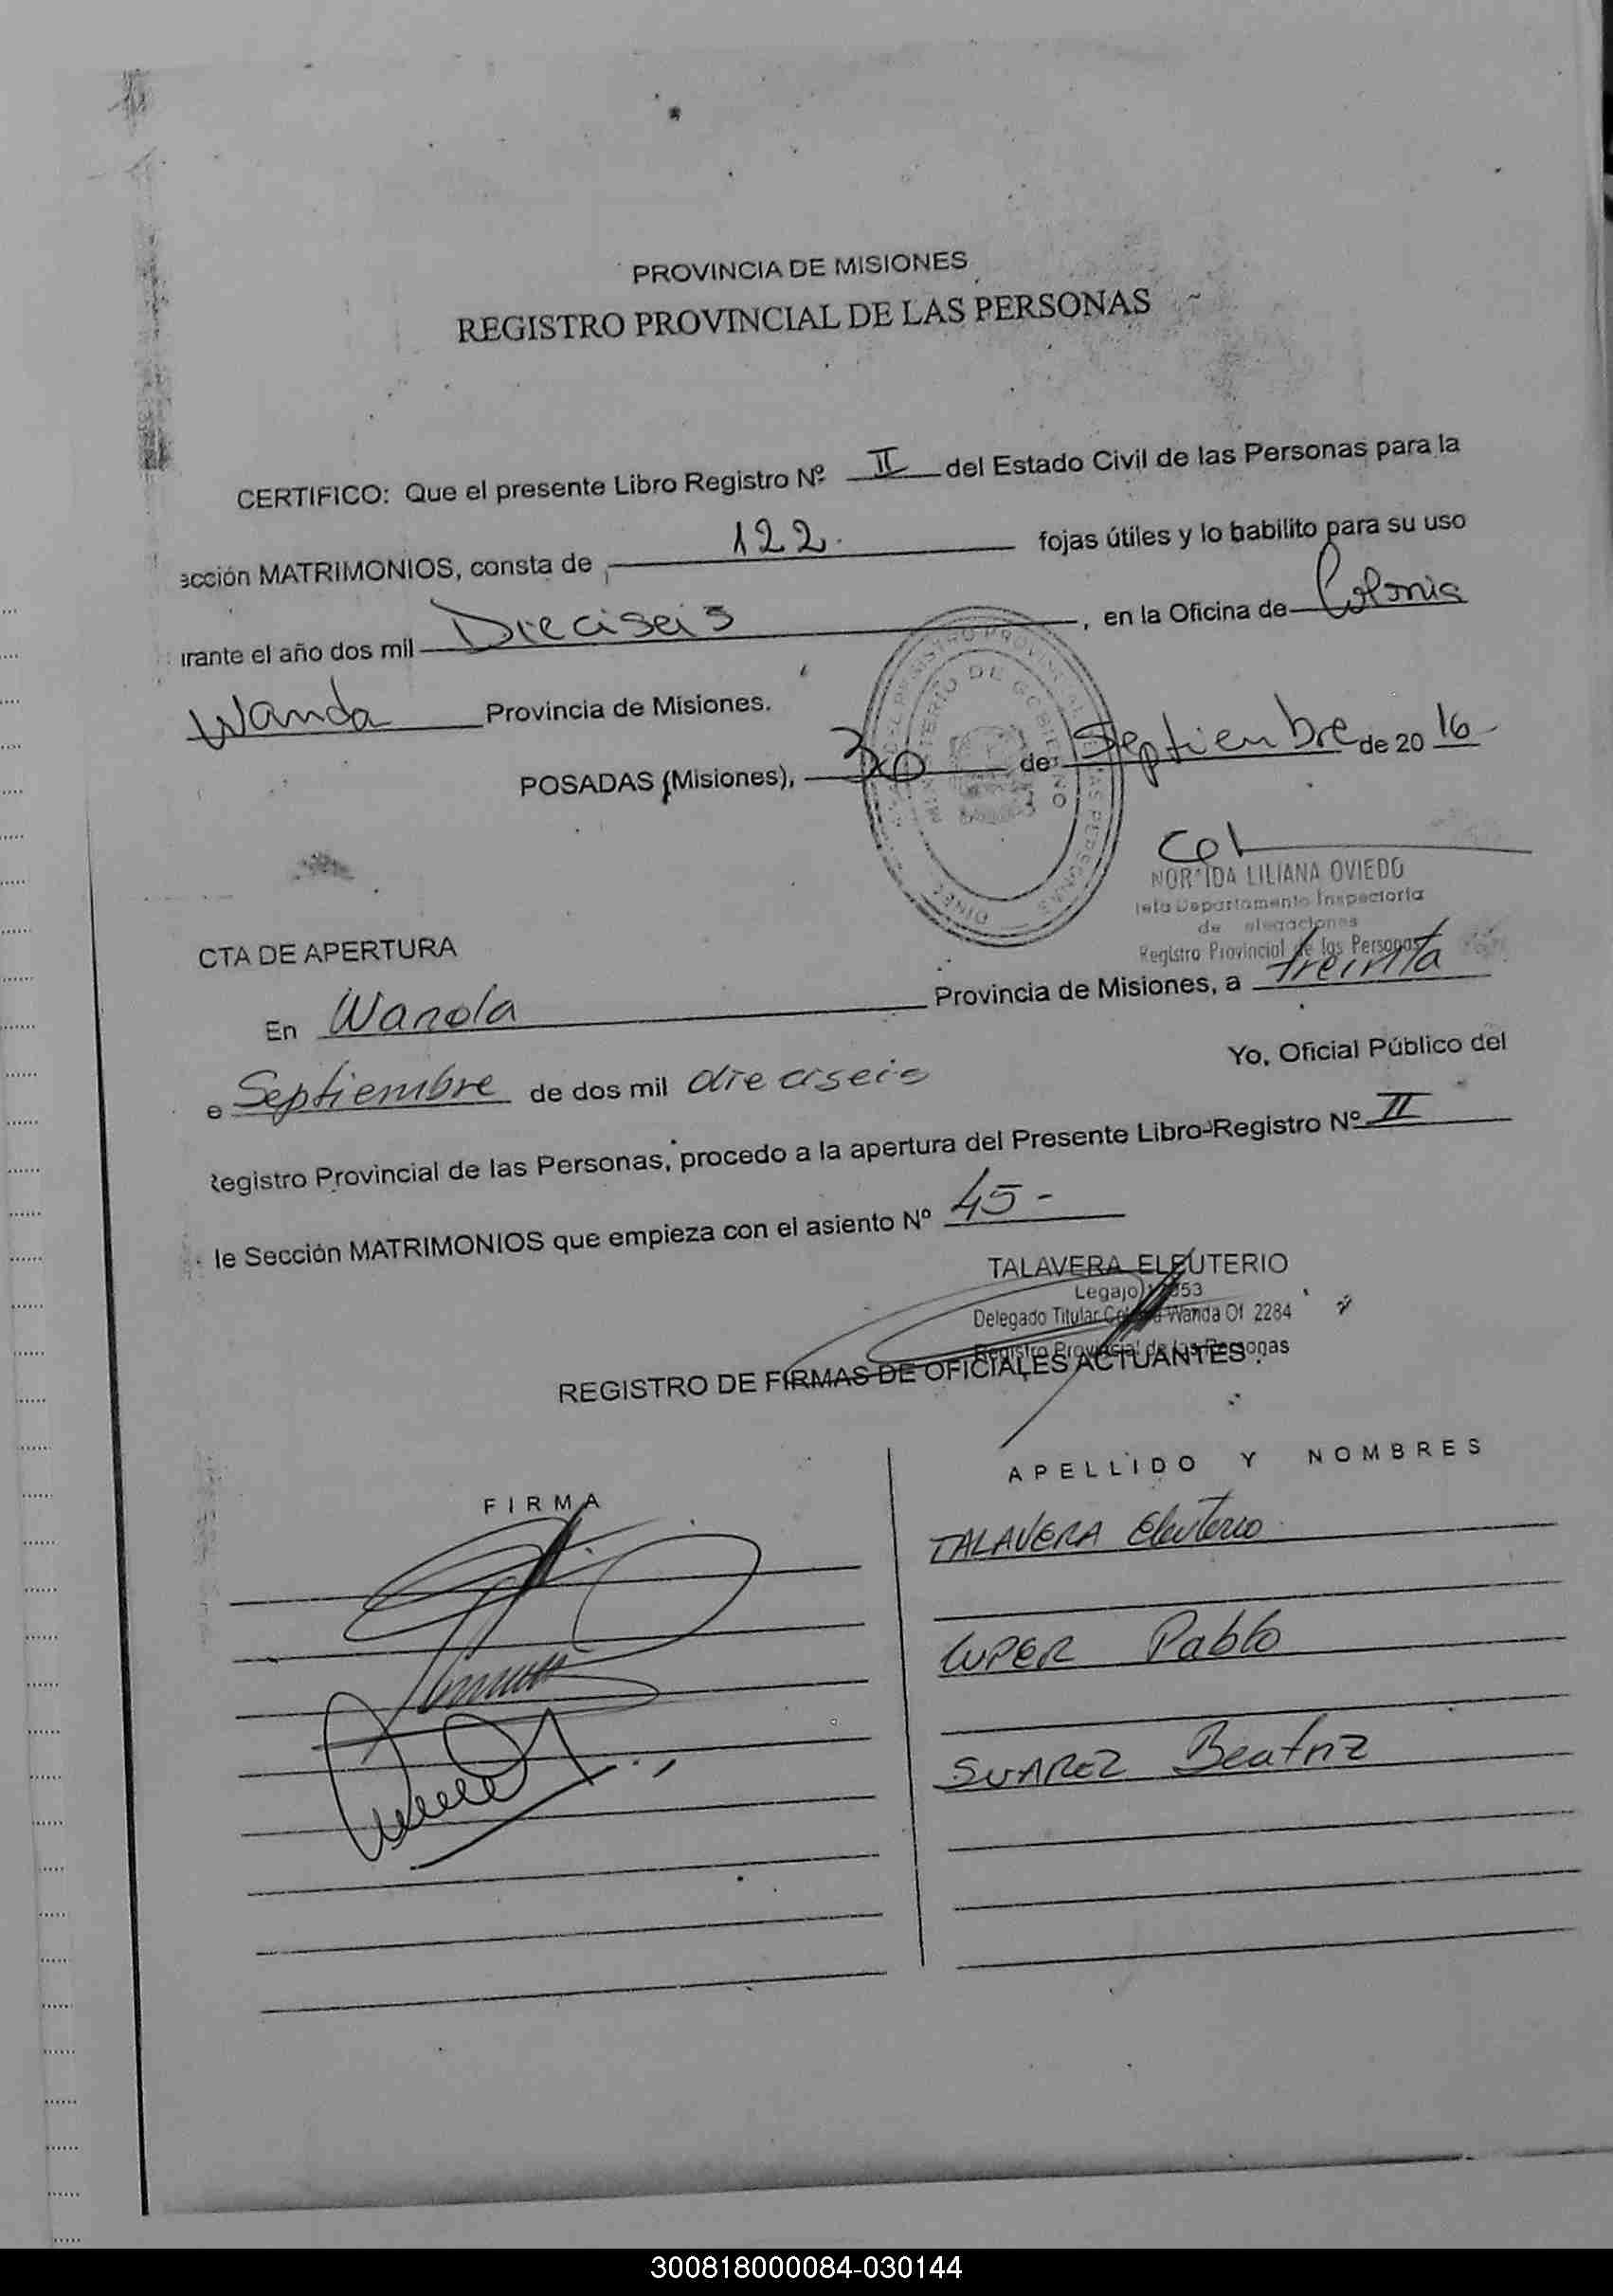 PROVINCIA DE MISIONES
REGISTRO PROVINCIAL DE LAS PERSONAS
CERTIFICO: Que el presente Libro Registro Nº II del Estado Civil de las Personas para la
ección MATRIMONIOS, consta de 122 fojas útiles y lo babilito para su uso
urante el año dos mil Dieciseis, en la Oficina de Colonia
Wanda Provincia de Misiones.
POSADAS (Misiones), 30 de Septiembre de 2016
LILIANA OVIEDO
Departamento Inspectoria
de
Registro Provincial de las Personas
CTA DE APERTURA
En Wanda Provincia de Misiones, a treinta
e Septiembre de dos mil dieciseis Yo, Oficial Público del
Registro Provincial de las Personas, procedo a la apertura del Presente Libro-Registro Nº II
le Sección MATRIMONIOS que empieza con el asiento Nº 45-
TALAVERA ELEUTERIO
Legajo
Delegado Titular Wanda Of 2284
Registro Provincial de las Personas
REGISTRO DE FIRMAS DE OFICIALES ACTUANTES
FIRMA APELLIDO Y NOMBRES
TALAVERA Eleuterio
LUPER Pablo
SUAREZ Beatriz
300818000084-030144